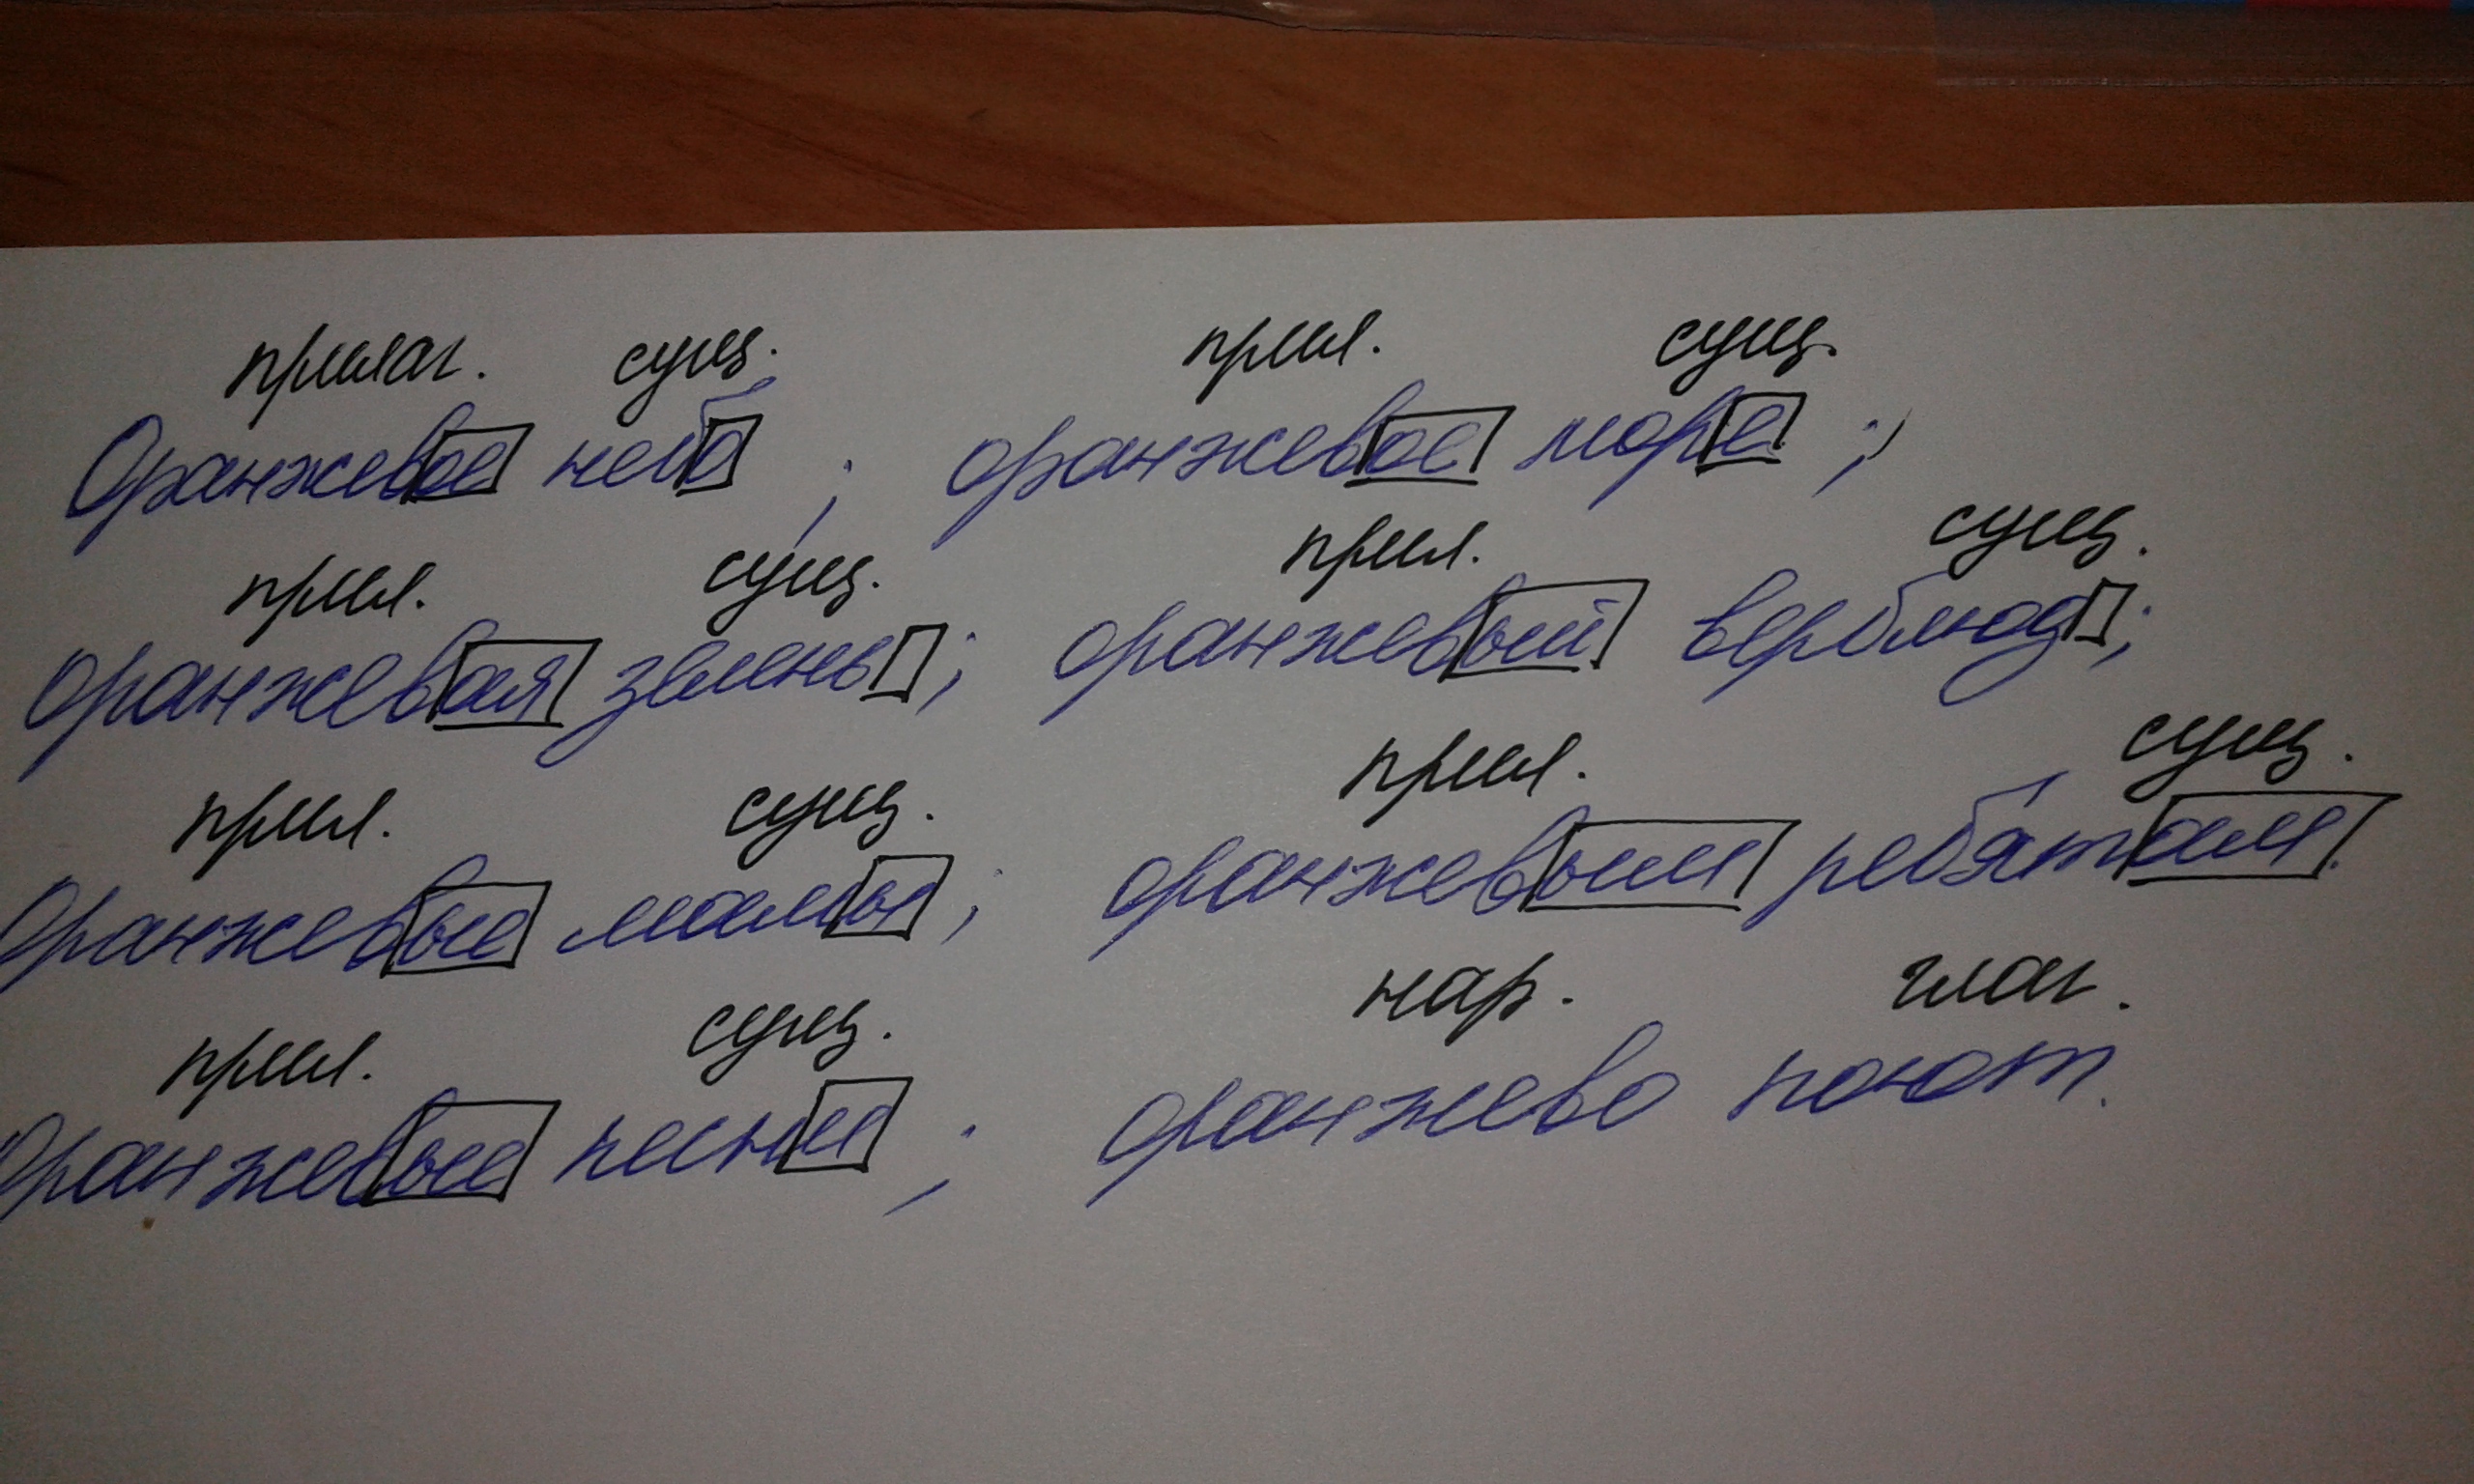 прилаг. сущ. прил. сущ.
Оранжевое небо ; оранжевое море ;
прил. сущ. прил. сущ.
оранжевая зелень ; оранжевый верблюд ;
прил. сущ. прил. сущ.
Оранжевые мамы ; оранжевым ребятам.
прил. сущ. нар. глаг.
Оранжевые песни ; оранжево поют.